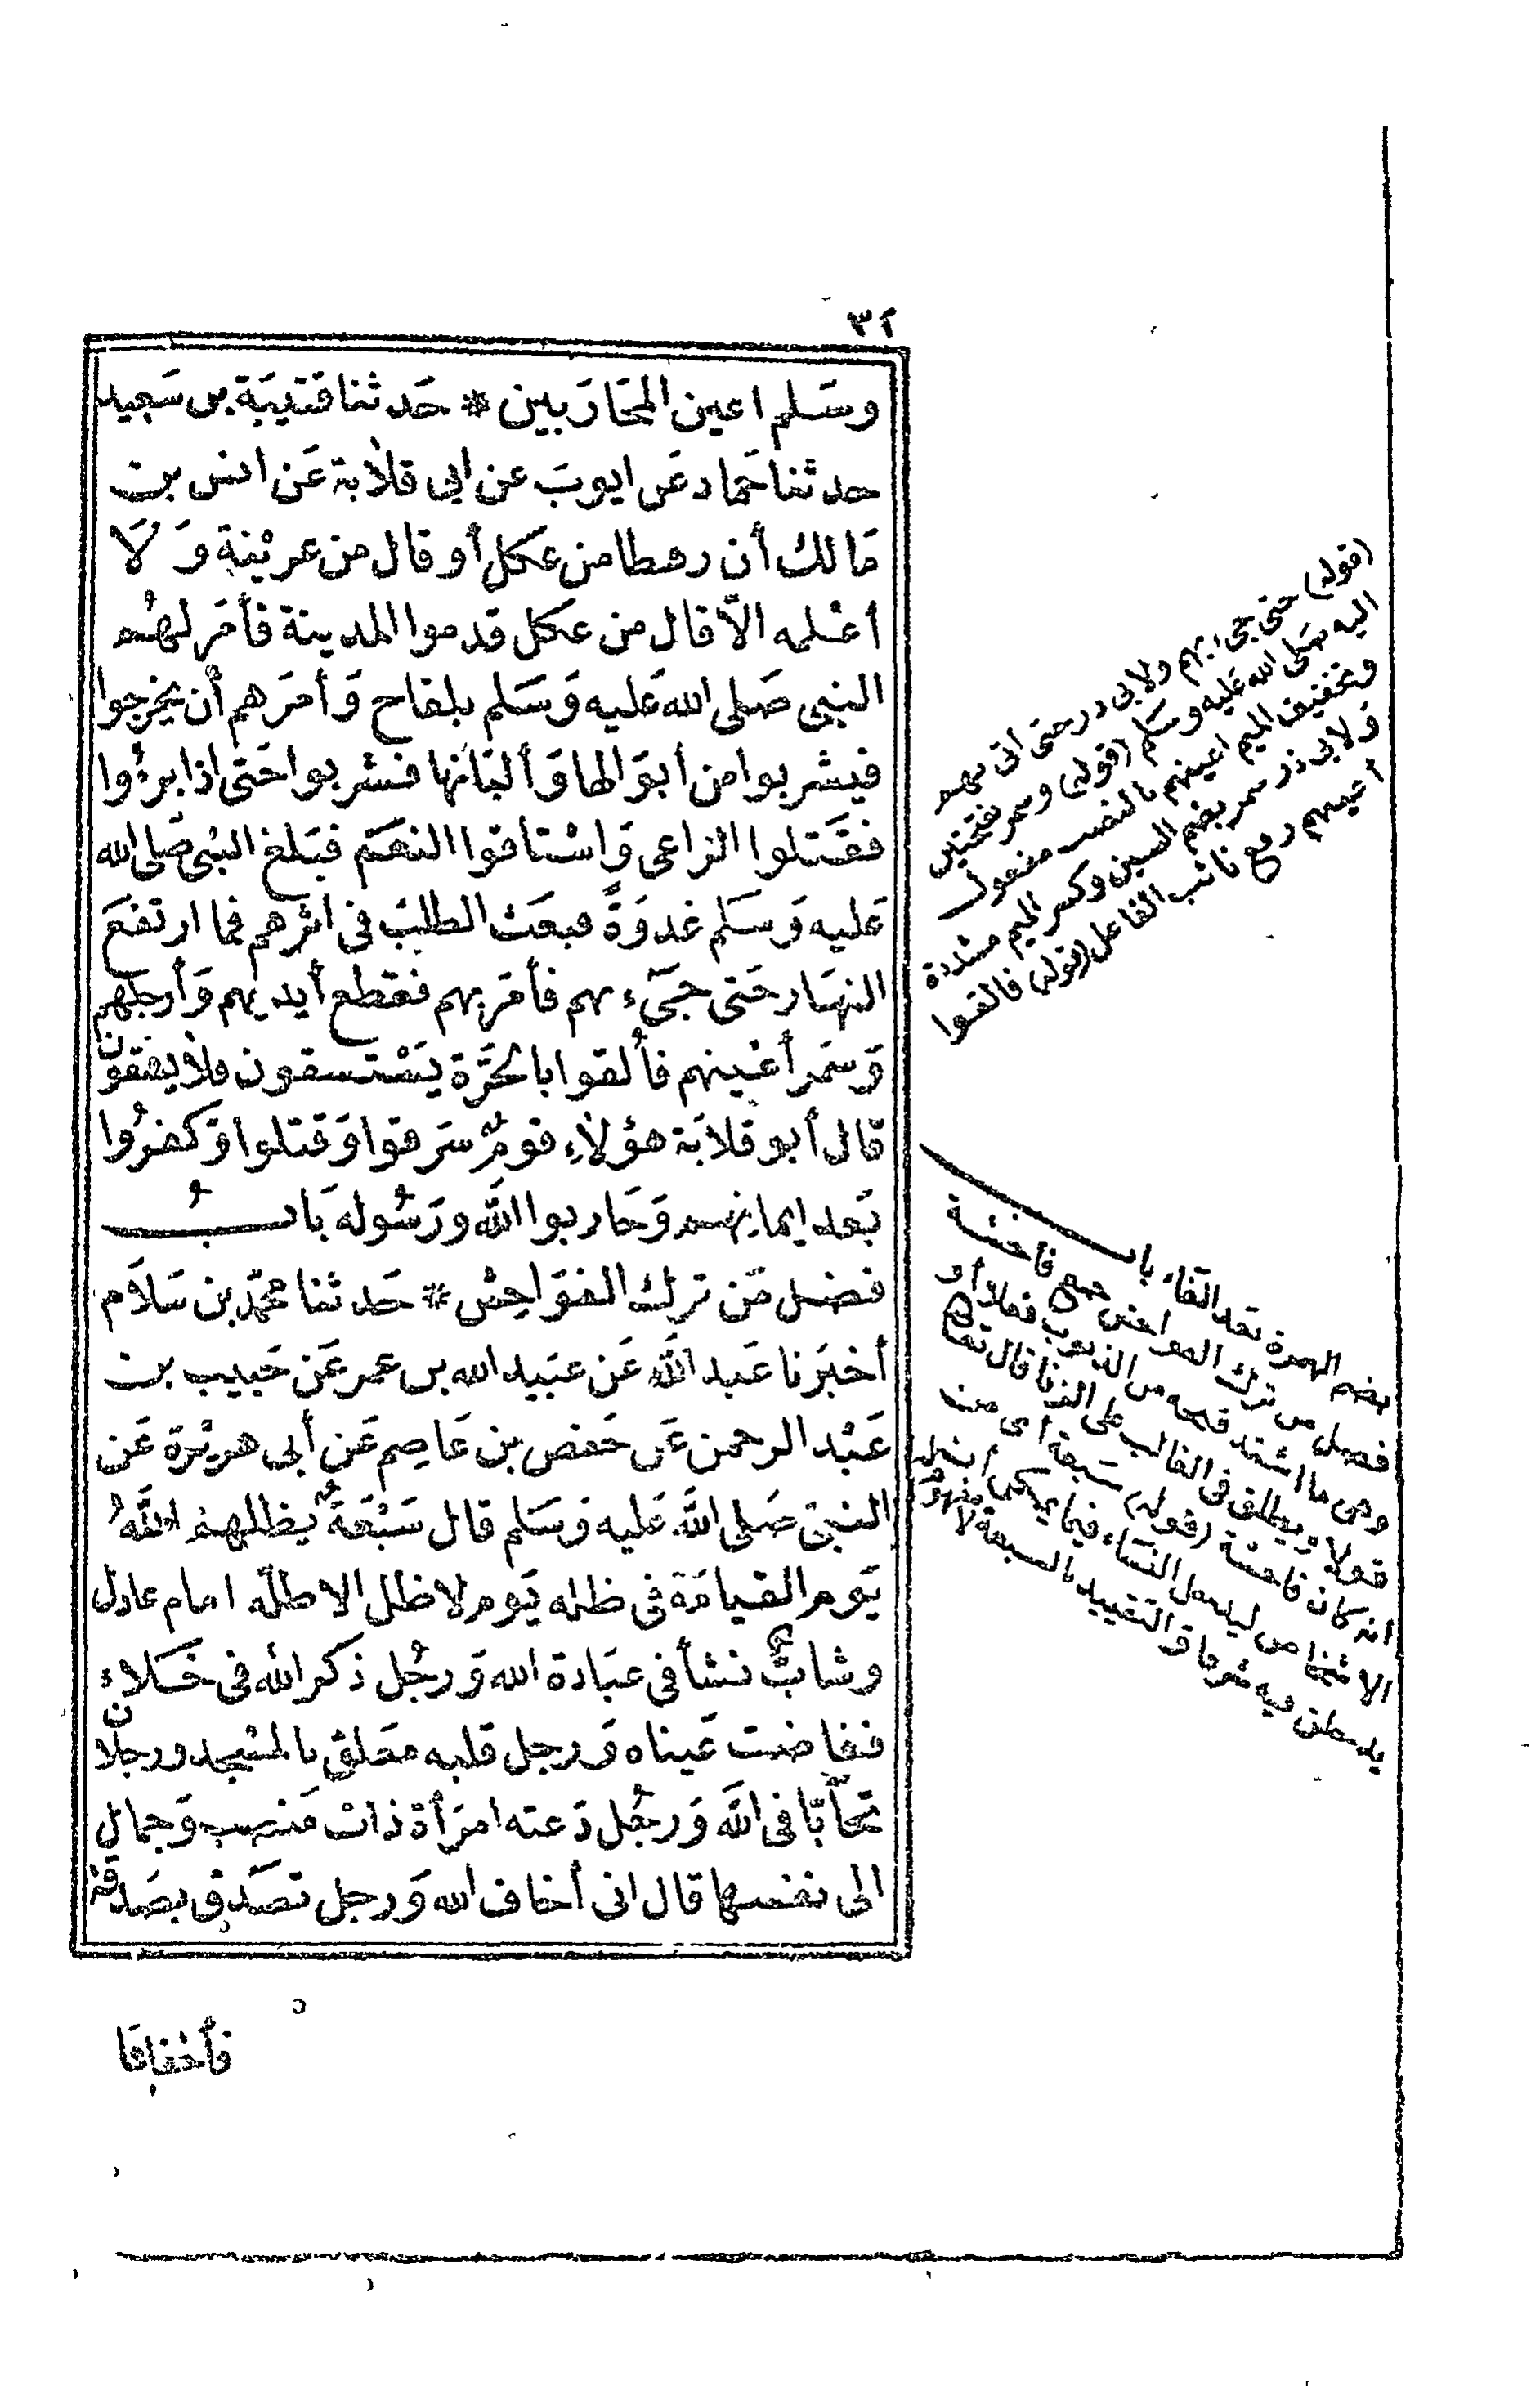 ٣٢
وسَلم اعين المحَارَبين * حَدثنا قتيبَة بن سَعِيد
حدثنا حَماد عَن ايوبَ عن ابى قلابة عَن انس بن
مَالك أن رهطا من عكل أو قال من عريْنة وَلَا
أعْلمه الّا قال من عكل قدموا المدينة فأمَر لهُم
النبى صَلى الله عَليه وَسَلم بلقاح وَأمرَهم أن يخرجوا
فيشربوا من أبوَالها وَألبَانها فشربوا حَتى اذا برءُوا
فقَتلوا الراعى وَاسْتاقوا النعَم فبَلغ النبى صَلى الله
عَليه وَسَلم غدوَةً فبعَث الطلبَ فى اثرهم فما ارتفعَ
النهَار حَتى جىَء بهم فأمَر بهم فقطع أيديهم وَأرجلهم
وَسَمر أعْينهم فأُلقوا بالحَرّة يَسْتسقون فلا يسقون
قال أبو قلابَة هؤلاء قومٌ سَرقوا وَقتلوا وَكفرُوا
بَعد ايمانهم وَحَاربوا اللّٰه ورَسُوله بَابُ
فضل مَن ترك الفوَاحِش * حَدثنا محمّد بن سَلَام
أخبَرنا عَبد اللّٰه عَن عبَيد الله بن عمر عَن حَبيب بن
عَبْد الرحمن عَن حَفص بن عَاصِم عَن أبى هريْرة عَن
النبىّ صَلى اللّٰه عَليه وَسَلم قال سَبْعَةٌ يظلهم اللّٰهُ
يَوم القيامَة فى ظله يَوم لا ظل الا ظلّه امام عادل
وشابٌّ نشأ فى عبَادة الله وَرجُل ذكر اللّٰه فى خَلاء
ففاضت عَيناه وَرجل قلبه معَلق بالمسْجد ورجلان
تحَابّا فى اللّٰه وَرجُل دَعته امرَأة ذاتْ مَنصب وَجمال
الى نفسها قال انى أخاف الله وَرجل تصَدق بصَدقة
فأخفاهَا
(قوله) حتى جىء بهم ولابى ذر حتى اتى بهم
اليه صَلى الله عَليه وسَلم (قوله) وسمر بفتحتين
وتخفيف الميم اعينهم بالنصب مفعول
وَلابى ذر سمر بضم السين وكسر الميم مشددة
أعينهم رفع نائب الفاعل (قوله) فالقوا
بضم الهمزة بَعد الفَاء بابـ
فضل من ترك الفواحش جمع فاحشة
وهى ما اشتد قبحه من الذنوب فعلا أو
قولا ويطلق فى الغالب على الزنا قال تعالى
انه كان فاحشة (قوله) سَبعة أى من
الاشخاص ليدخل النسَاء فيما يمكن أن يدخلن
فيه شرعا والتقييد بالسبعة لا مفهوم